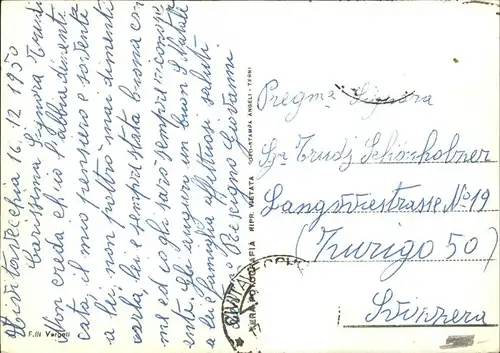 Civitavecchia 16.12.1950
Carissima Signora Trudi
Non creda ch'io l'abbia dimenti
cata il mio pensiero è sovente
a lei, non potrò mai dimenti
carla, lei è sempre stata buona con
me ed io gli sarò sempre riconosc
ente. Gli auguro un buon S. Natale
a lei famiglia affettuosi saluti
Resigno Giovanni
F.lli Vergati
VERA FOTOGRAFIA RIPR. VIETATA FOTO-STAMPA ANGELI - TERNI
Pregma Signora
Sra Trudj Schönholzner
Langwiestrasse No 19
(Zurigo 50)
Svizzera